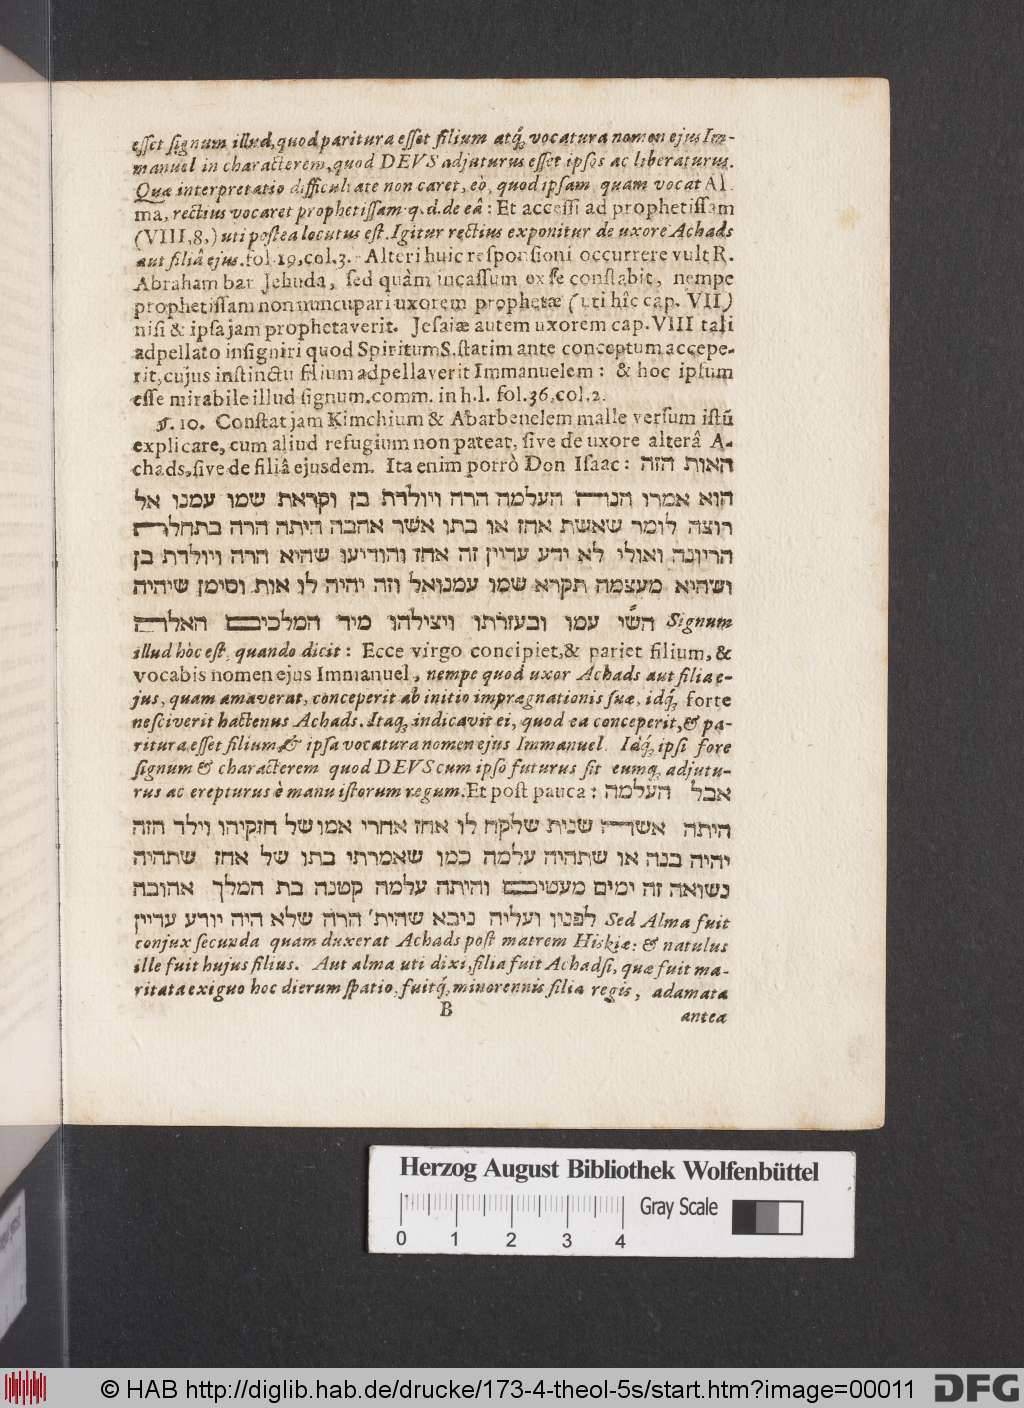 esset signum illud, quod paritura esset filium atq́; vocatura nomen ejus Im-
manuel in characterem, quod DEUS adjuturus esset ipsos ac liberaturus.
Quæ interpretatio difficultate non caret, eò, quod ipsam quam vocat Al
ma, rectius vocaret prophetissam q. d. de eâ: Et accessi ad prophetissam
(VIII, 8,) uti postea locutus est. Igitur rectius exponitur de uxore Achads
aut filiâ ejus. fol. 19. col. 3. Alteri huic responsioni occurrere vult R.
Abraham bar Jehuda, sed quàm incassum ex se constabit, nempe
prophetissam non nuncupari uxorem prophetæ (uti hîc cap. VII)
nisi & ipsa jam prophetaverit. Jesaiæ autem uxorem cap. VIII tali
adpellato insigniri quod Spiritum S. statim ante conceptum accepe-
rit, cujus instinctu filium adpellaverit Immanuelem: & hoc ipsum
esse mirabile illud signum. comm. in h. l. fol. 36. col. 2.
§. 10. Constat jam Kimchium & Abarbenelem malle versum istũ
explicare, cum aliud refugium non pateat, sive de uxore alterâ A-
chads, sive de filiâ ejusdem. Ita enim porrò Don Isaac: האות הזה
הוא אמרו הנה העלמה הרה ויולדת בן וקראת שמו עמנו אל
רוצה לומר שאשת אחז או בתו אשר אהבה היתה הרה בתחלת
הריונה ואולי לא ידע עדיין זה אחז והודיעו שהיא הרה ויולדת בן
ושהיא מעצמה תקרא שמו עמנואל וזה יהיה לו אות וסימן שיהיה
השי עמו ובעזרתו ויצילהו מיד המלכים האלה Signum
illud hòc est, quando dicit: Ecce virgo concipiet, & pariet filium, &
vocabis nomen ejus Immanuel, nempe quod uxor Achads aut filia e-
jus, quam amaverat, conceperit ab initio imprægnationis suæ, idq́; forte
nesciverit hactenus Achads. Itaq; indicavit ei, quod ea conceperit, & pa-
ritura esset filium & ipsa vocatura nomen ejus Immanuel. Idq́; ipsi fore
signum & characterem quod DEUS cum ipso futurus sit eumq; adjutu-
rus ac erepturus è manu istorum regum. Et post pauca: אבל העלמה
היתה אשה שנית שלקח לו אחז אחרי אמו של חזקיהו וילד הזה
יהיה בנה או שתהיה עלמה כמו שאמרתי בתו של אחז שתהיה
נשואה זה ימים מעטים והיתה עלמה קטנה בת המלך אהובה
לפניו ועליה ניבא שהית' הרה שלא היה יודע עדיין Sed Alma fuit
conjux secunda quam duxerat Achads post matrem Hiskiæ: & natulus
ille fuit hujus filius. Aut alma uti dixi, filia fuit Achadsi, quæ fuit ma-
ritata exiguo hoc dierum spatio, fuitq́; minorennis filia regis, adamata
B antea
Herzog August Bibliothek Wolfenbüttel
0 1 2 3 4 Gray Scale
© HAB http://diglib.hab.de/drucke/173-4-theol-5s/start.htm?image=00011 DFG